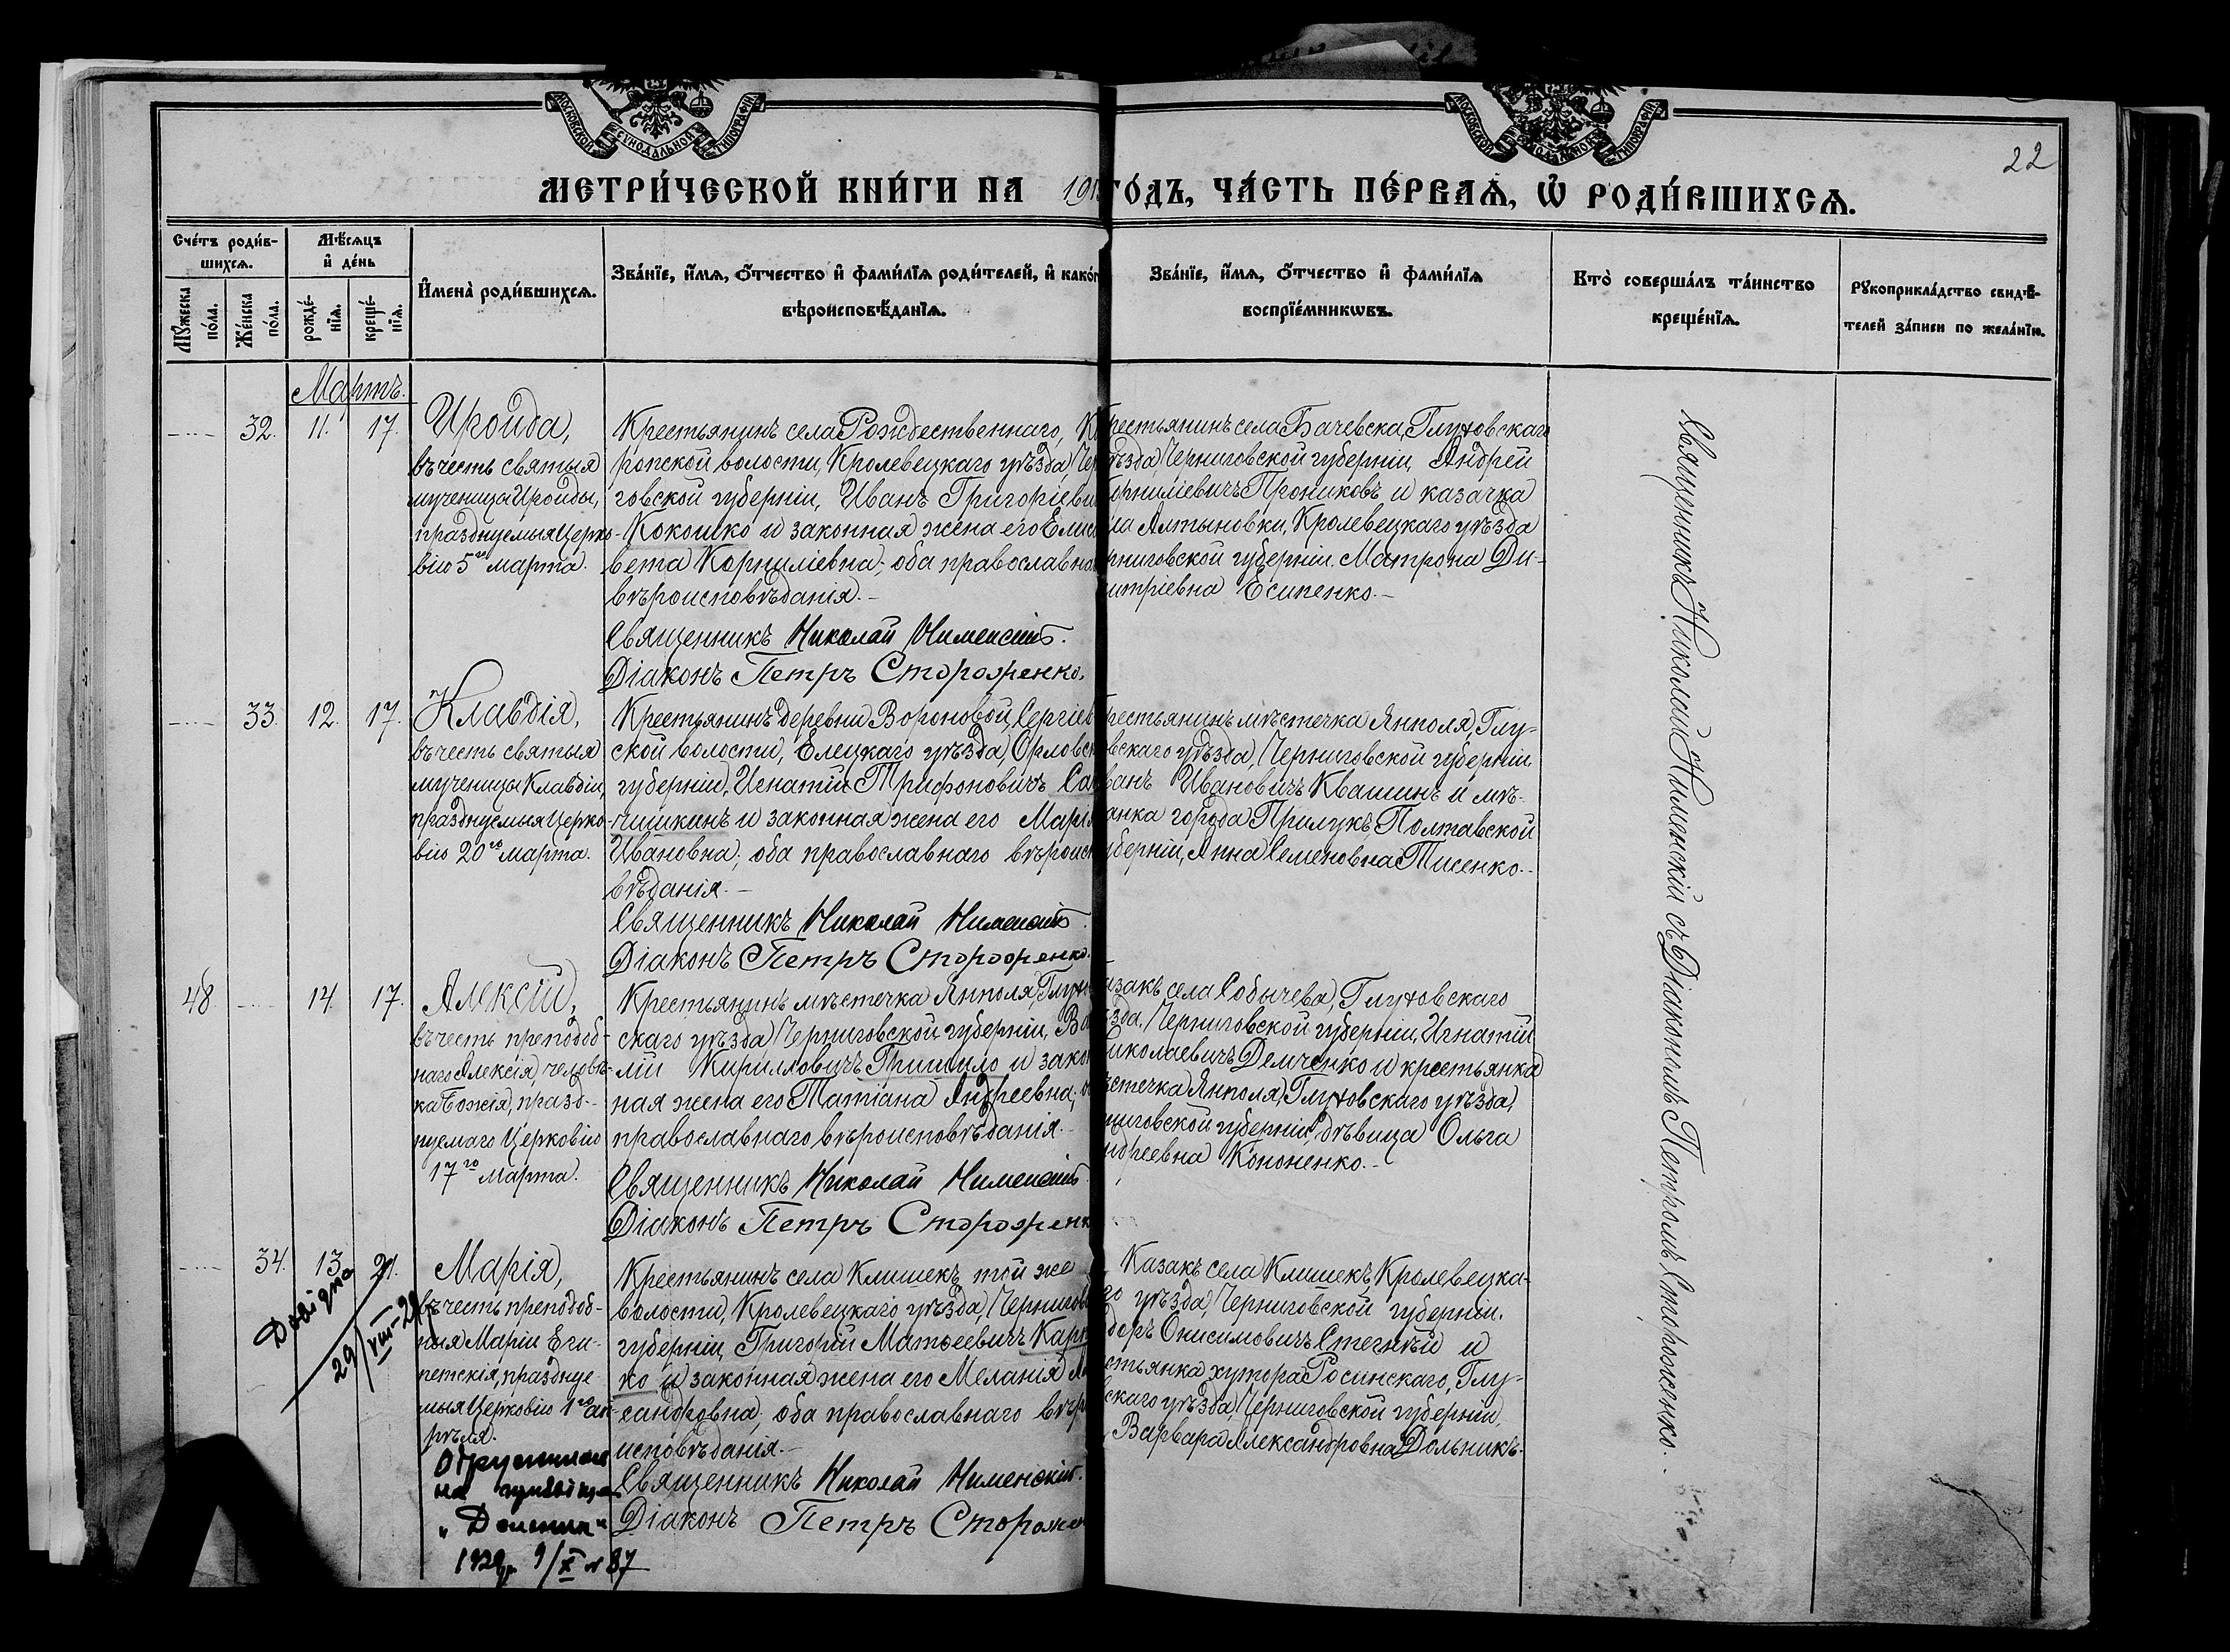 МОСКОВСКОЙ СѴНОДАЛЬНОЙ ТИПОГРАФІИ
МОСКОВСКОЙ СѴНОДАЛЬНОЙ ТИПОГРАФІИ
22
МЕТРИ́ЧЕСКОЙ КНИ́ГИ НА 191 ГО́ДЪ, ЧА́СТЬ ПЕ́РВАѦ, Ѡ РОДИ́ВШИХСѦ.
Сче́тъ роди́в-
шихсѧ.
Мѣ́сѧцъ
и де́нь
Мꙋ́жеска
по́ла.
Же́нска
по́ла.
рожде́-
нїѧ.
креще́-
нїѧ.
Имена̀ роди́вшихсѧ.
Зва́нїе, и́мѧ, о́тчество и фами́лїѧ роди́телей, и како́г
вѣроисповѣ́данїѧ.
Зва́нїе, и́мѧ, о́тчество и фами́лїѧ
воспрїе́мникѡвъ.
Кто̀ соверша́лъ та́инство
креще́нїѧ.
Рꙋкоприкла́дство свидѣ́-
телей за́писи по жела́нїю.
Мартъ.
32. 11. 17.
Ироида,
въ честь святыя
мученицы Ироиды,
празднуемыя Церко-
вію 5го марта.
Крестьянинъ села Рождественнаго, К
ропской волости, Кролевецкаго уѣзда, Чер
говской губерніи, Иванъ Григоріеви
Кокошко и законная жена его Елиса
вета Корниліевна; оба православна
вѣроисповѣданія.-
Священникъ Николай Нименскій.
Діаконъ Петръ Стороженко.
рестьянинъ села Бачевска, Глуховскаго
ѣзда, Черниговской губерніи, Андрей
орниліевичъ Прониковъ и казачка
ла Алтыновки, Кролевецкаго уѣзда
рниговской губерніи, Матрона Ди-
митріевна Есипенко.-
33. 12. 17.
Клавдія,
въ честь святыя
мученицы Клавдіи,
празднуемыя Церко-
вію 20го марта.
Крестьянинъ деревни Вороновой, Сергіев
ской волости, Елецкаго уѣзда, Орловск
губерніи, Игнатій Трифоновичъ Са
чишкинъ и законная жена его Марія
Ивановна; оба православнаго вѣроисп
вѣданія.-
Священникъ Николай Нименскій.
Діаконъ Петръ Стороженко.
рестьянинъ мѣстечка Янполя, Глу-
вскаго уѣзда, Черниговской губерніи
ванъ Ивановичъ Квашинъ и мѣ-
анка города Прилукъ, Полтавской
берніи, Анна Семеновна Тисенко.-
48. 14. 17.
Алексій,
въ честь преподоб-
наго Алексія, человѣ-
ка Божія, празд-
нуемаго Церковію
17го марта.
Крестьянинъ мѣстечка Янполя, Глухо
скаго уѣзда, Черниговской губерніи, Ва
лій Кирилловичъ Гришило и закон
ная жена его Татіана Андреевна; о
православнаго вѣроисповѣданія.-
Священникъ Николай Нименскій
Діаконъ Петръ Стороженк
азакъ села Собычева, Глуховскаго
зда, Черниговской губерніи, Игнатій
иколаевичъ Демченко и крестьянка
ѣстечка Янполя, Глуховскаго уѣзда,
ниговской губерніи, дѣвица Ольга
ндреевна Кононенко.-
34. 13. 21.
Марія,
въ честь преподоб-
ныя Маріи Еги-
петскія, праздуе-
мыя Церковію 1го ап-
рѣля.
Крестьянинъ села Клишекъ, той же
волости, Кролевецкаго уѣзда, Чернигов
губерніи, Григорій Матѳеевичъ Карп
ко и законная жена его Меланія Ал
сандровна; оба православнаго вѣр
исповѣданія.-
Священникъ Николай Нименскій.
Діаконъ Петръ Стороже
Казакъ села Клишекъ, Кролевецка-
го уѣзда, Черниговской губерніи.
доръ Онисимовичъ Стегнѣй и
стьянка хутора Росинскаго, Глу-
вскаго уѣзда, Черниговской губерніи,
Варвара Александровна Дольникъ.
Довідка
29/VIII-29
на
1929 р. 9/X № 87
Священникъ Николай Нименскій съ Діакономъ Петромъ Стороженко.